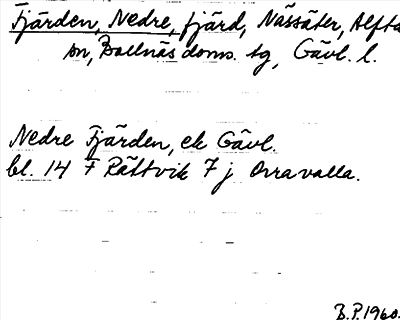 Fjärden, Nedre, fjärd, Nässäter, Alfta
sn, Bollnäs doms. tg, Gävl. l.
Nedre Fjärden, ek Gävl.
bl. 14 F Rättvik 7 j Orravalla.
B.P. 1960.